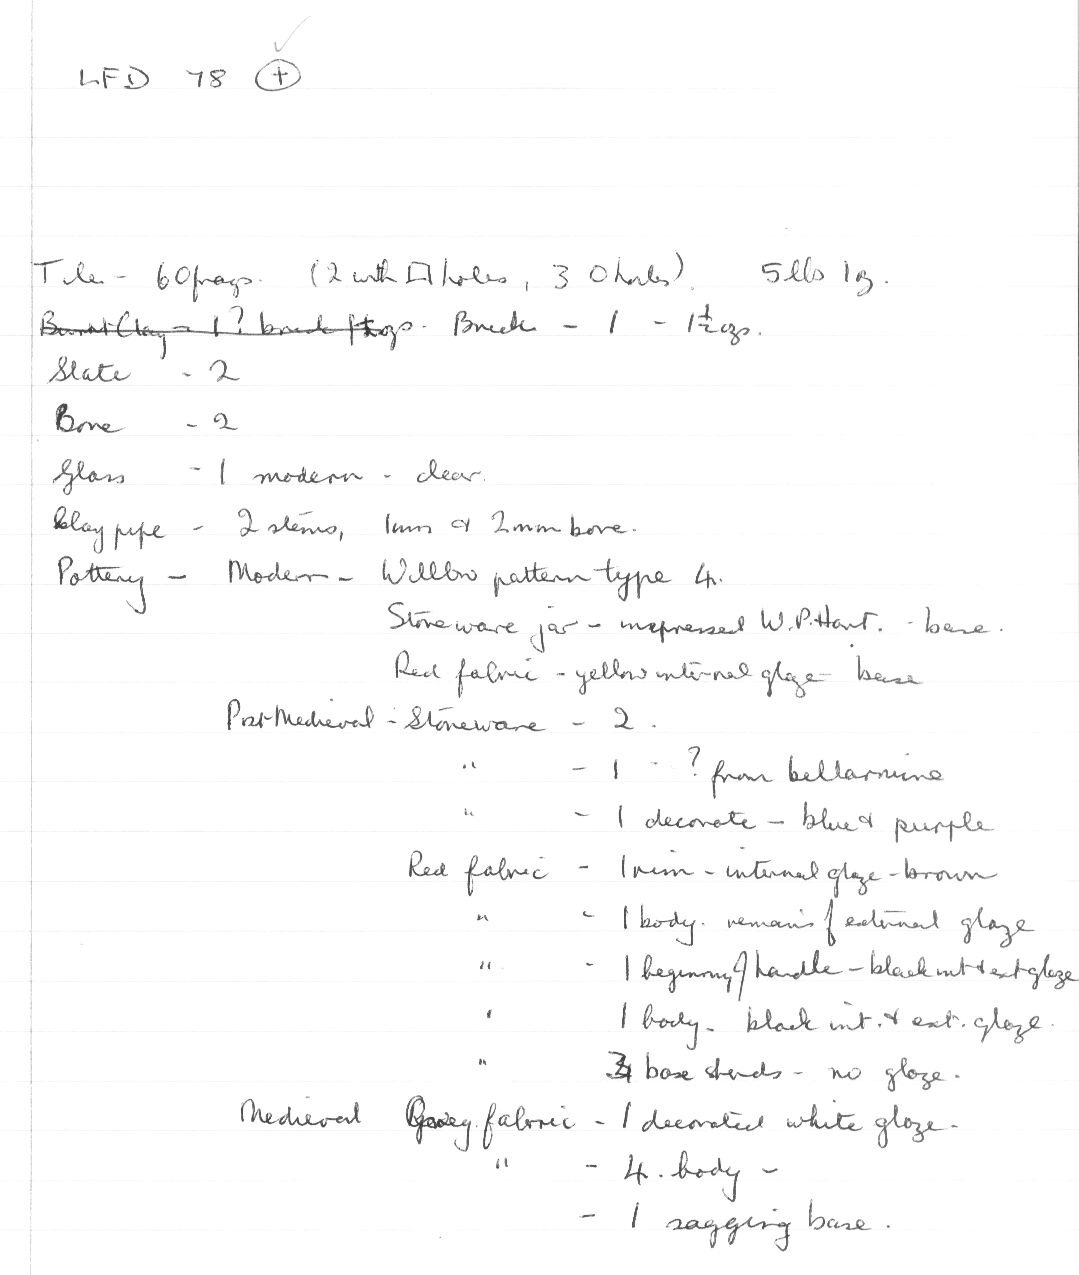 LFD 78 +
Tile - 60 frags. (2 with □ holes, 3 O holes). 5 lbs 1 oz.
Burnt Clay - 1 ? brick Brick - 1 - 1½ ozs.
Slate - 2
Bone - 2
Glass - 1 modern - clear.
Clay pipe - 2 stems, 1mm & 2mm bore.
Pottery - Modern - Willow pattern type 4.
Stoneware jar - impressed W.P. Hart. - base.
Red fabric - yellow internal glaze base
Post Medieval - Stoneware - 2.
" - 1 ? from bellarmine
" - 1 decorate - blue & purple
Red fabric - 1 rim - internal glaze - brown
" - 1 body. remains of external glaze
" - 1 beginning of handle - black int & ext glaze
" 1 body - black int. & ext. glaze.
" base sherds - no glaze.
Medieval Grey fabric - 1 decorated white glaze -
" - 4. body -
- 1 sagging base.